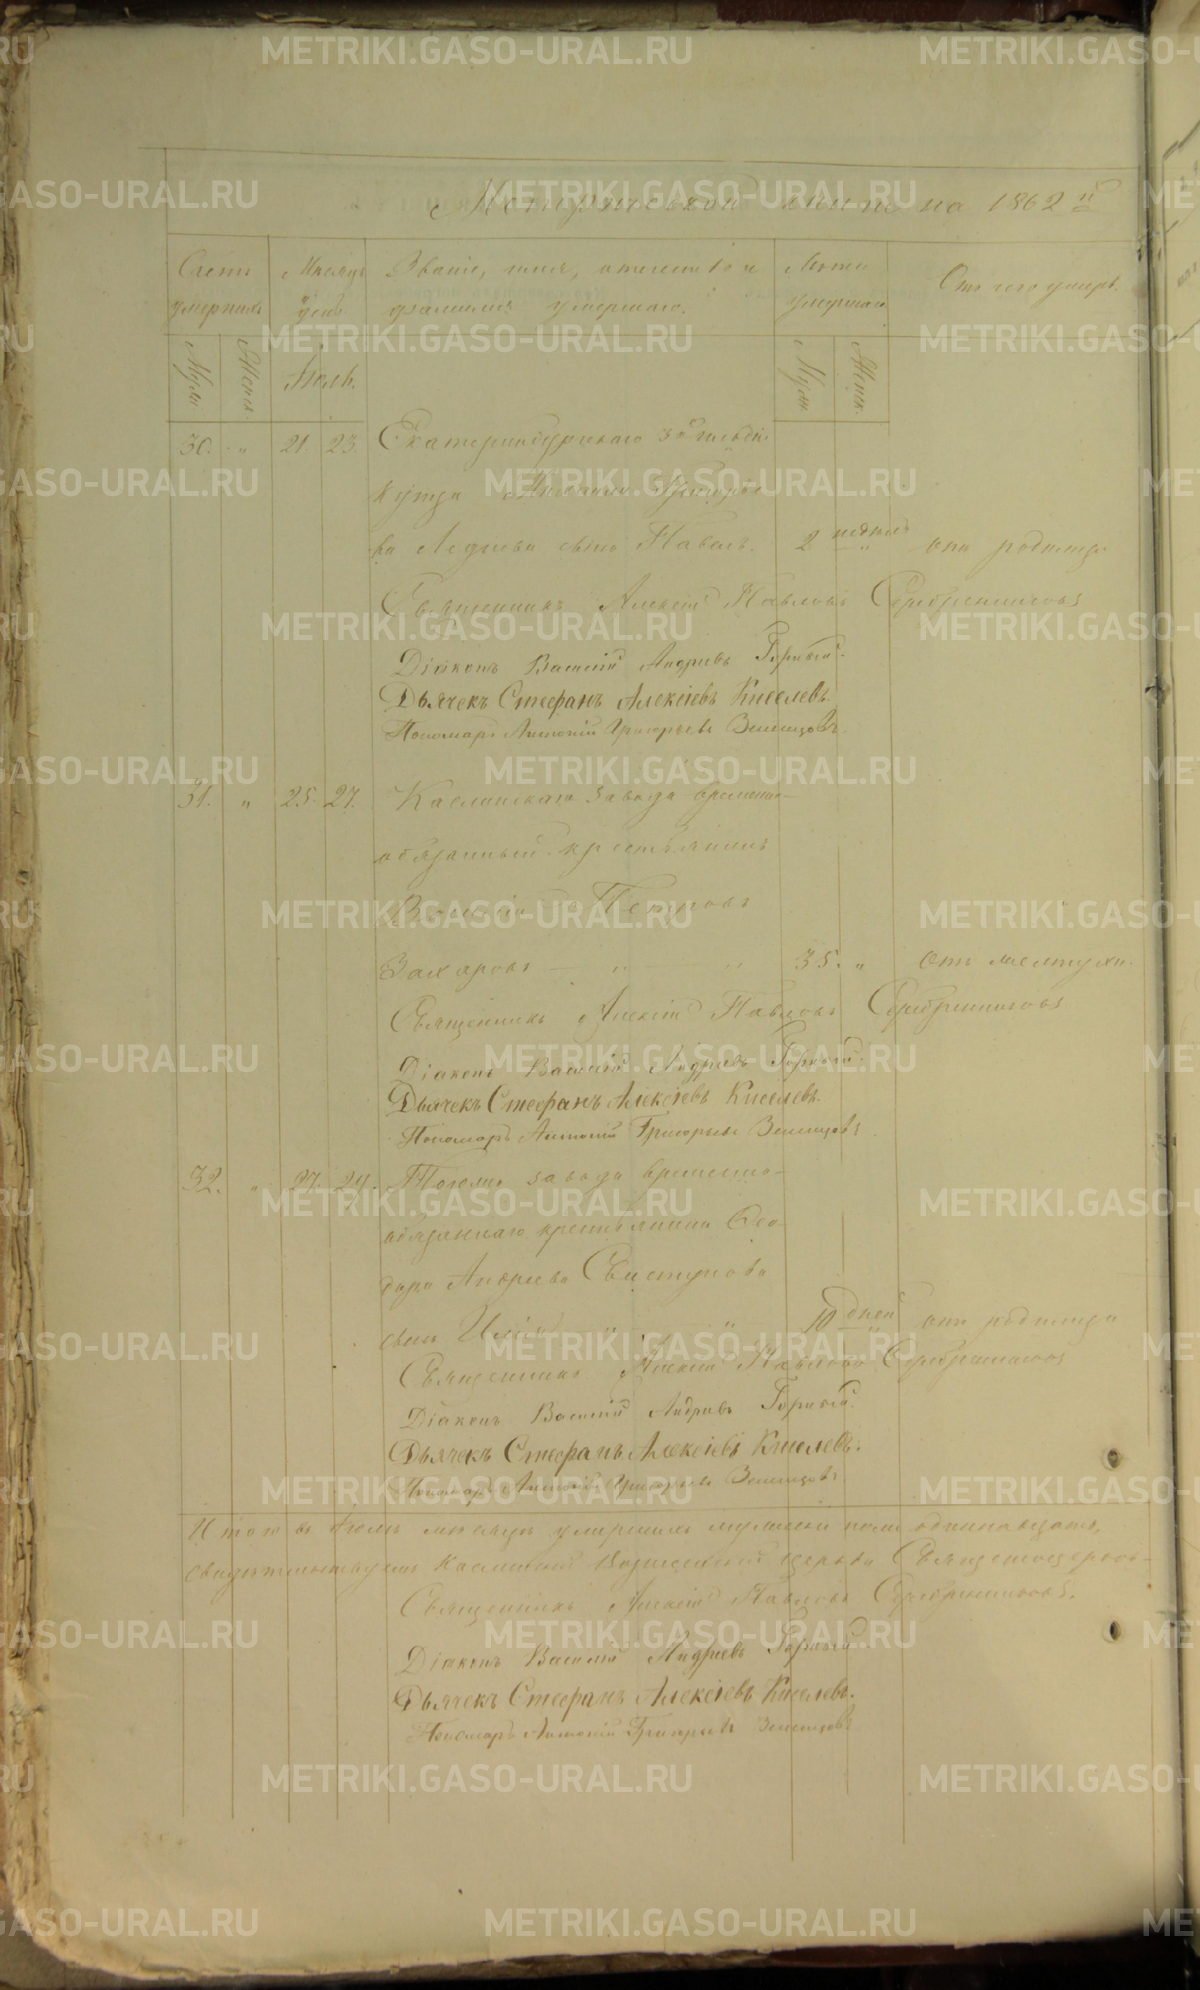 METRIKI.GASO-URAL.RU
Метрической книги на 1862 й
Счетъ умершихъ
Мѣсяцъ и день
Званіе, имя, отечество и фамилія умершаго.
Лѣта умершаго
Отъ чего умеръ.
Муж. Женск. Іюль. Муж. Женск.
30. „ 21. 23. Екатеринбургскаго 3й гильдіи
купца
ва сынъ Павелъ. 2 недѣль „ отъ родимца
Священникъ Алексій Павловъ Серебренниковъ
Діаконъ Василій Андреевъ Горный.
Дьячекъ Стефанъ Алексіевъ Киселевъ.
Пономарь Антоній Григорьевъ Земляцовъ.
31. „ 25. 27. Каслинскаго завода временно-
обязанный крестьянинъ
Василій Петровъ
Захаровъ — „ — „ 35. „ отъ желтухи.
Священникъ Алексій Павловъ Серебренниковъ
Діаконъ Василій Андреевъ Горный.
Дьячекъ Стефанъ Алексіевъ Киселевъ.
Пономарь Антоній Григорьевъ
32. „ 27. 29. Тогожъ завода временно-
обязаннаго крестьянина Ѳео-
дора Андреева Свистунова
сынъ Илія „ „ 10 дней „ отъ родимца
Священникъ Алексій Павловъ Серебренниковъ
Діаконъ Василій Андреевъ Горный.
Дьячекъ Стефанъ Алексіевъ Киселевъ.
Пономарь Антоній Григорьевъ
Итого въ Іюлѣ мѣсяцѣ умершихъ мужеска пола одиннадцать,
свидѣтельствуемъ Каслинской Вознесенской церкви
Священникъ Алексій Павловъ Серебренниковъ.
Діаконъ Василій Андреевъ Горный
Дьячекъ Стефанъ Алексіевъ Киселевъ.
Пономарь Антоній Григорьевъ